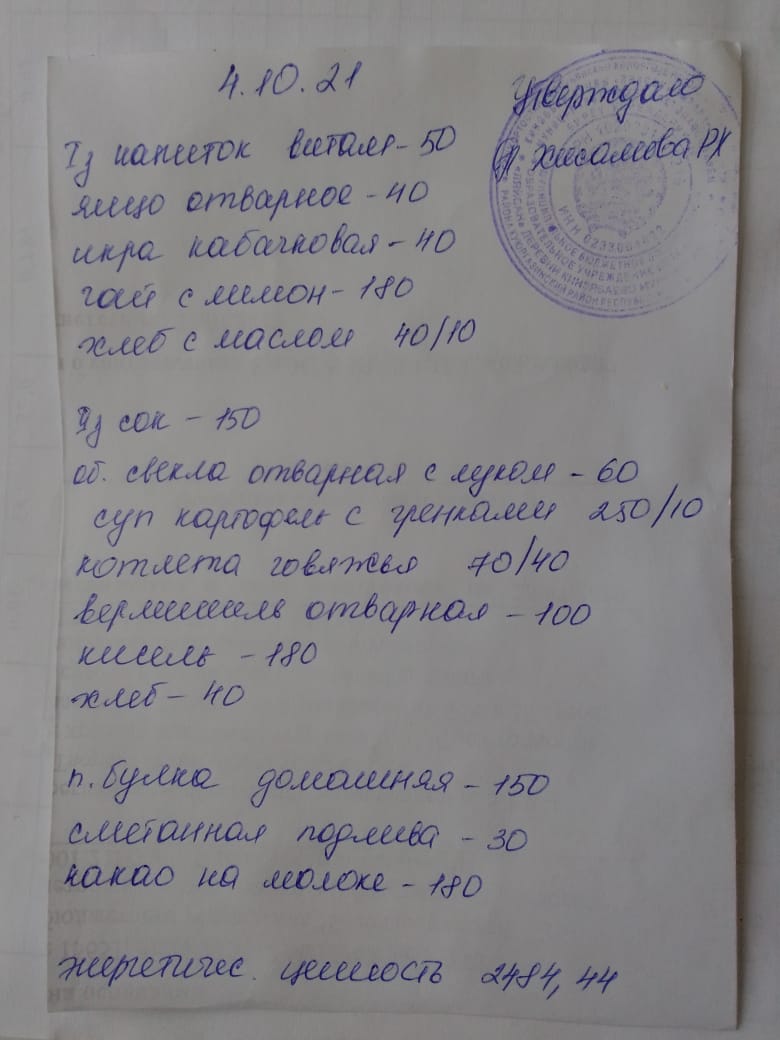 4.10.21
Утверждаю
Хисамова РХ
Iз напиток витал - 50
яйцо отварное - 40
икра кабачковая - 40
чай с лимон - 180
хлеб с маслом 40/10
IIз сок - 150
об. свекла отварная с луком - 60
суп картофель с гренками 250/10
котлета говяжья 70/40
вермишель отварная - 100
кисель - 180
хлеб - 40
п. булка домашняя - 150
сметанная подлива - 30
какао на молоке - 180
энергетичес. ценность 2484,44